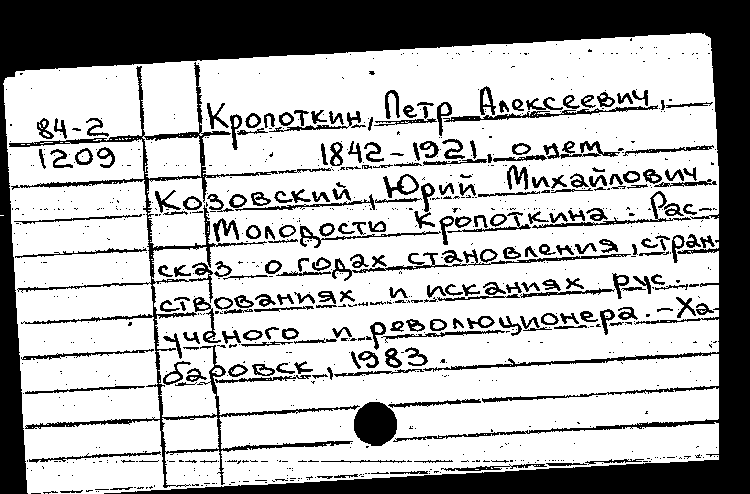 Кропоткин, Петр Алексеевич,
84-2
1842-1921, о нем.
1209
Козовский, Юрий Михайлович.
Молодость Кропоткина: Рас-
сказ о годах становления, стран-
ствованиях и исканиях рус.
ученого и революционера. - Ха-
баровск, 1983.